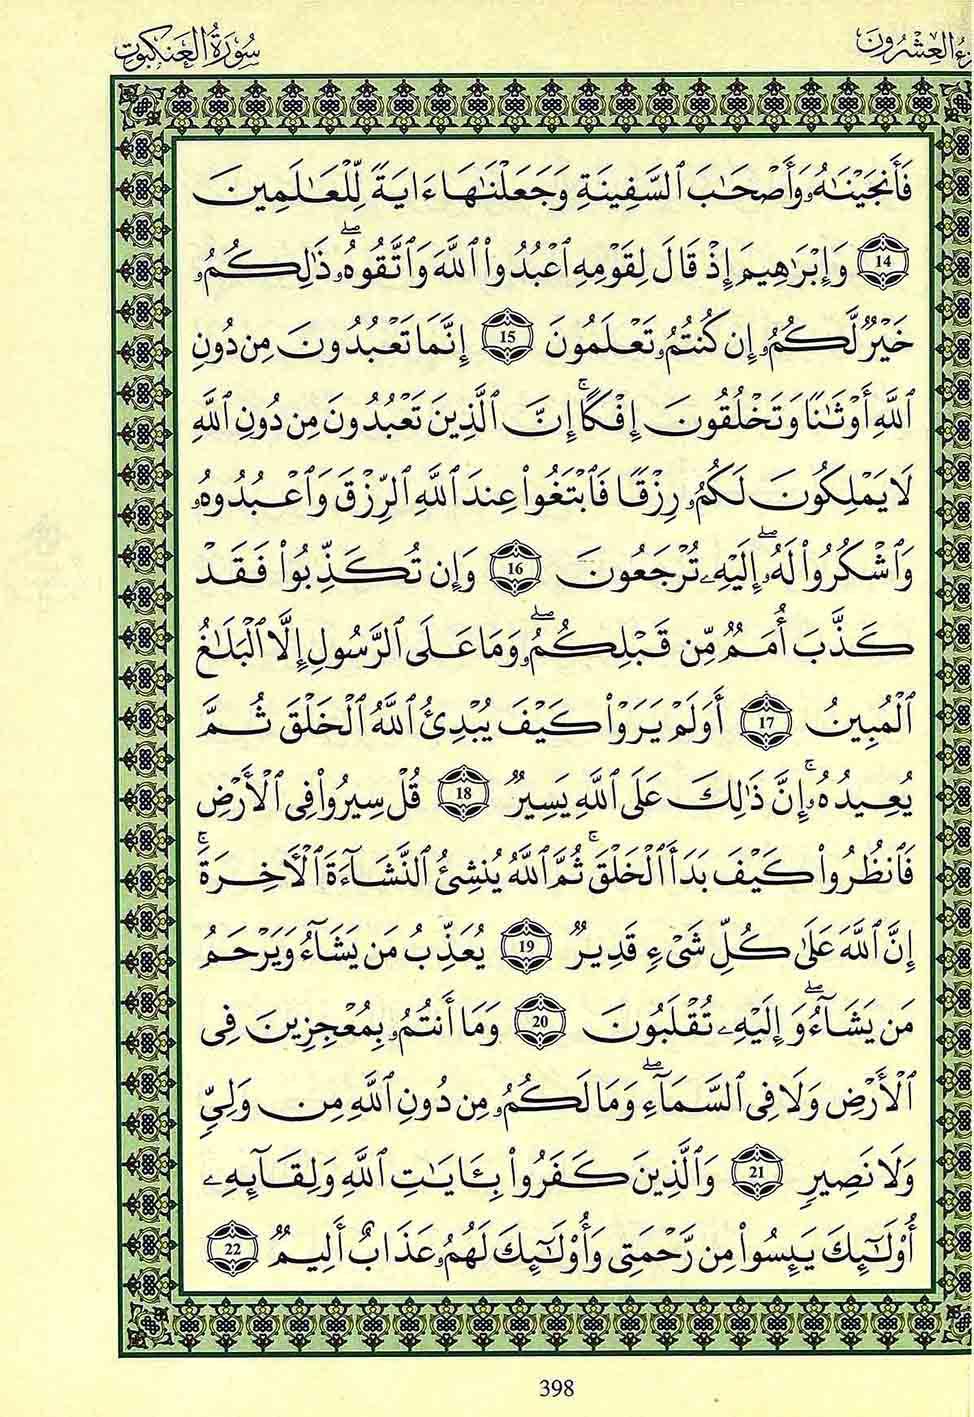 سُورَةُ الْعَنكَبُوتِ
الْعِشْرُونَ
فَأَنجَيْنَٰهُۥ وَأَصْحَٰبَ ٱلسَّفِينَةِ وَجَعَلْنَٰهَا ءَايَةً لِّلْعَٰلَمِينَ
14 وَإِبْرَٰهِيمَ إِذْ قَالَ لِقَوْمِهِ ٱعْبُدُوا۟ ٱللَّهَ وَٱتَّقُوهُۖ ذَٰلِكُمُۥ
خَيْرٌ لَّكُمُۥ إِن كُنتُمُۥ تَعْلَمُونَ 15 إِنَّمَا تَعْبُدُونَ مِن دُونِ
ٱللَّهِ أَوْثَٰنًا وَتَخْلُقُونَ إِفْكًاۚ إِنَّ ٱلَّذِينَ تَعْبُدُونَ مِن دُونِ ٱللَّهِ
لَا يَمْلِكُونَ لَكُمُۥ رِزْقًا فَٱبْتَغُوا۟ عِندَ ٱللَّهِ ٱلرِّزْقَ وَٱعْبُدُوهُۥ
وَٱشْكُرُوا۟ لَهُۥۖ إِلَيْهِۦ تُرْجَعُونَ 16 وَإِن تُكَذِّبُوا۟ فَقَدْ
كَذَّبَ أُمَمٌ مِّن قَبْلِكُمُۥۖ وَمَا عَلَى ٱلرَّسُولِ إِلَّا ٱلْبَلَٰغُ
ٱلْمُبِينُ 17 أَوَلَمْ يَرَوْا۟ كَيْفَ يُبْدِئُ ٱللَّهُ ٱلْخَلْقَ ثُمَّ
يُعِيدُهُۥۚ إِنَّ ذَٰلِكَ عَلَى ٱللَّهِ يَسِيرٌ 18 قُلْ سِيرُوا۟ فِى ٱلْأَرْضِ
فَٱنظُرُوا۟ كَيْفَ بَدَأَ ٱلْخَلْقَۚ ثُمَّ ٱللَّهُ يُنشِئُ ٱلنَّشَآءَةَ ٱلْأَخِرَةَۚ
إِنَّ ٱللَّهَ عَلَىٰ كُلِّ شَىْءٍ قَدِيرٌ 19 يُعَذِّبُ مَن يَشَآءُ وَيَرْحَمُ
مَن يَشَآءُۖ وَإِلَيْهِۦ تُقْلَبُونَ 20 وَمَا أَنتُمُۥ بِمُعْجِزِينَ فِى
ٱلْأَرْضِ وَلَا فِى ٱلسَّمَآءِۖ وَمَا لَكُمُۥ مِن دُونِ ٱللَّهِ مِن وَلِىٍّ
وَلَا نَصِيرٍ 21 وَٱلَّذِينَ كَفَرُوا۟ بِـَٔايَٰتِ ٱللَّهِ وَلِقَآئِهِۦ
أُو۟لَٰٓئِكَ يَئِسُوا۟ مِن رَّحْمَتِى وَأُو۟لَٰٓئِكَ لَهُمُۥ عَذَابٌ أَلِيمٌ 22
398